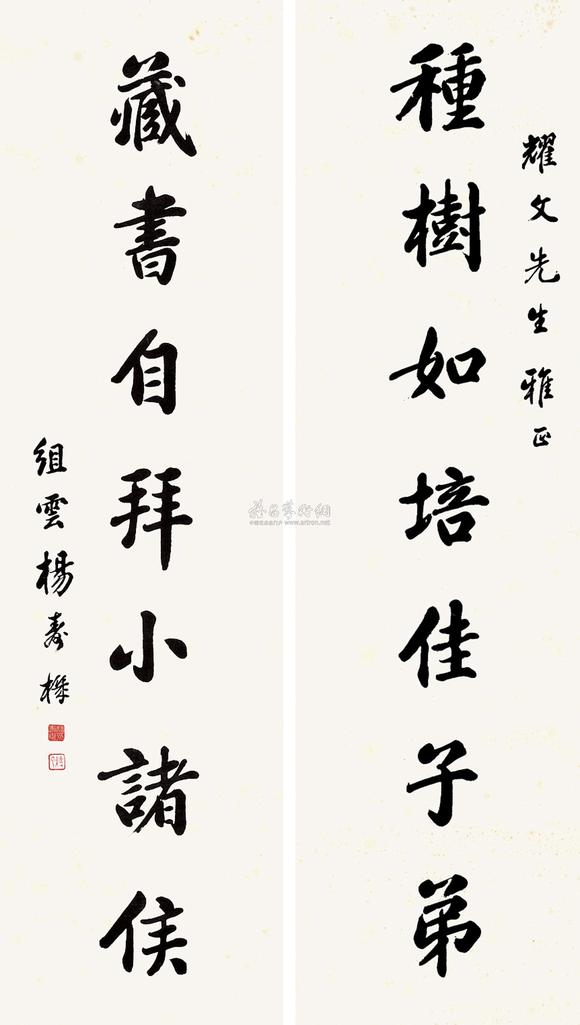 耀文先生雅正
種樹如培佳子弟
藏書自拜小諸侯
組雲楊壽樞
www.artron.net